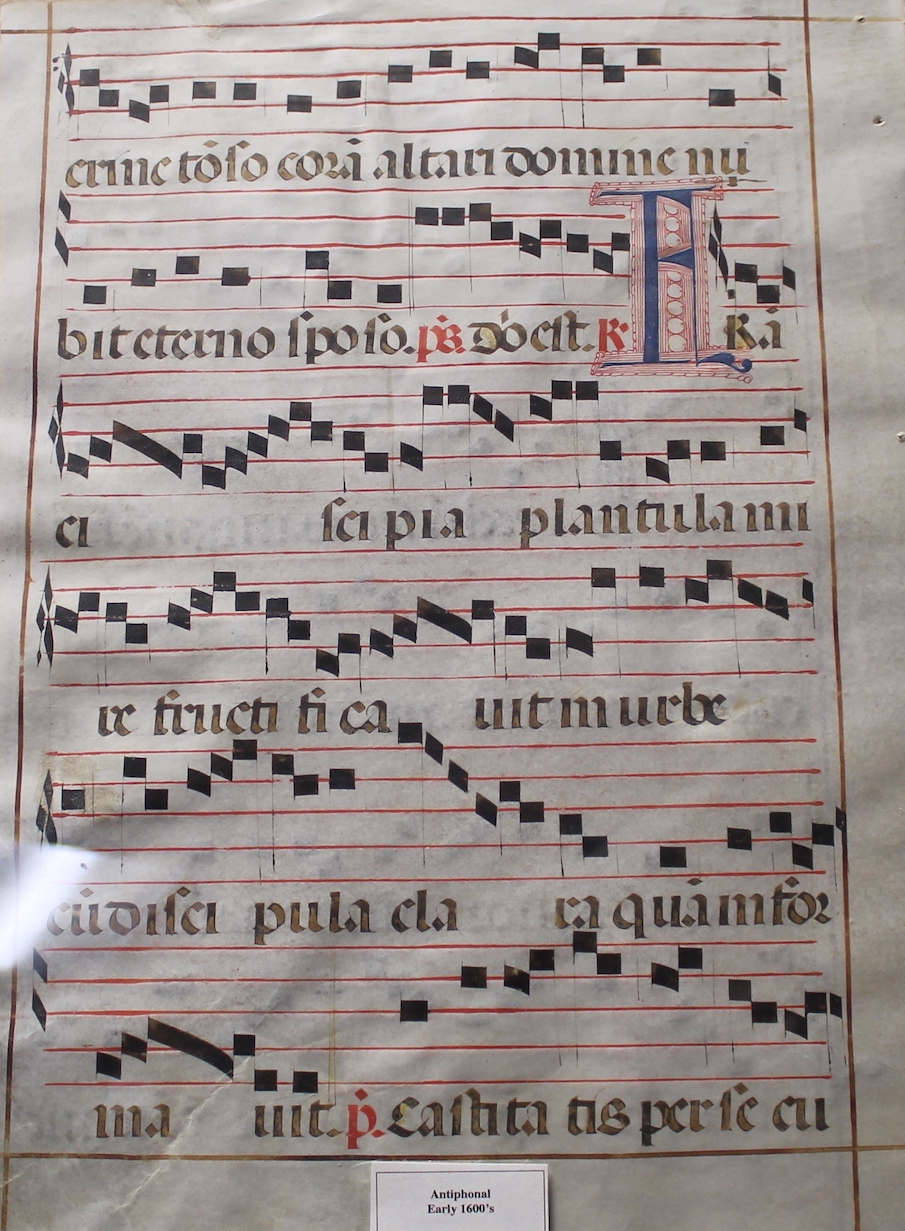 crine tōso corā altari domine nu
bit eterno sposo. ps. Dō est. R. F RĀ
ci sci pia plantula mi
re fructi fi ca uit in urbe
cū disci pula cla ra quā in for
ma uit. p. Castita tis per se cu
Antiphonal
Early 1600's